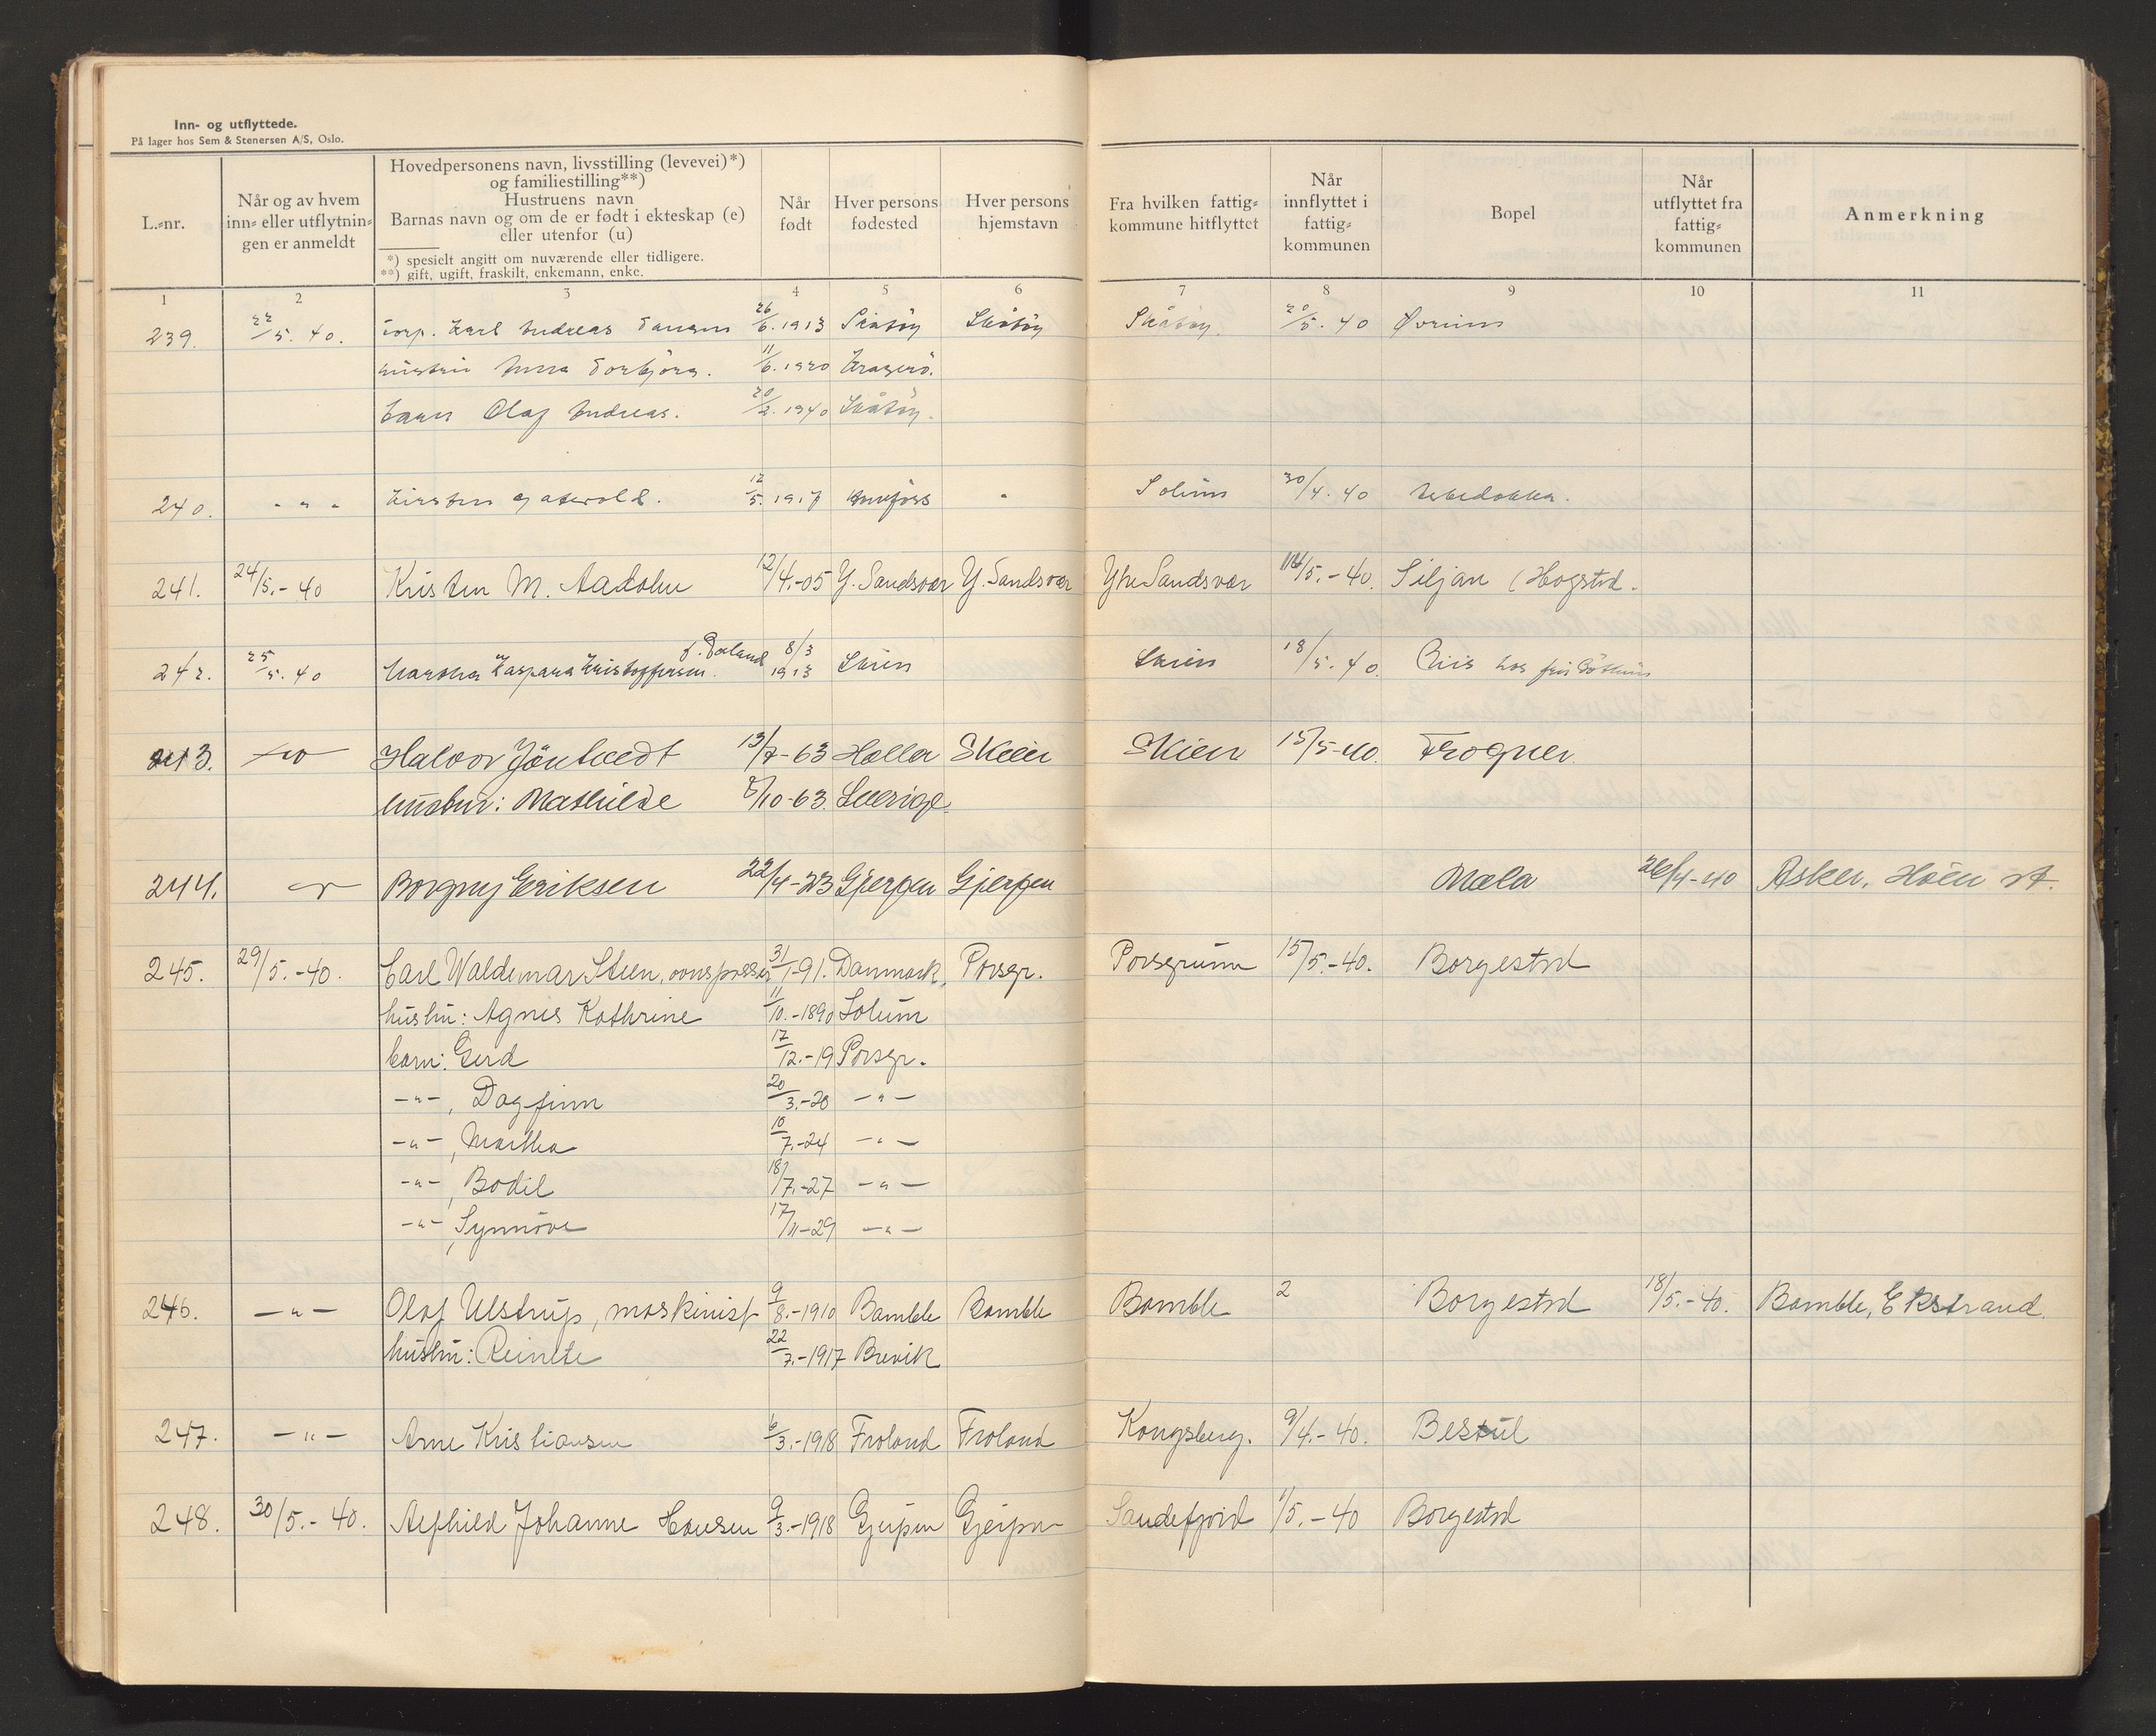 Inn- og utflyttede.
På lager hos Sem & Stenersen A/S, Oslo.
L.-nr.
Når og av hvem inn- eller utflytningen er anmeldt
Hovedpersonens navn, livsstilling (levevei)*) og familiestilling**)
Hustruens navn
Barnas navn og om de er født i ekteskap (e) eller utenfor (u)
*) spesielt angitt om nuværende eller tidligere.
**) gift, ugift, fraskilt, enkemann, enke.
Når født
Hver persons fødested
Hver persons hjemstavn
Fra hvilken fattigkommune hitflyttet
Når innflyttet i fattigkommunen
Bopel
Når utflyttet fra fattigkommunen
Anmerkning
1 2 3 4 5 6 7 8 9 10 11
239. 22/5. 40. Karl Andreas 26/6. 1913 Skåtøy Skåtøy Skåtøy 20/5. 40
hustru Anna Torbjørg. 11/6. 1920 Kragerø.
barn Olaf Andreas. 20/2. 1940 Skåtøy.
240. - " - Kirsten 12/5. 1917 Solum 30/4. 40
241. 24/5.-40 Kristen M. Aadolm 12/4.-05 Y. Sandsvær Y. Sandsvær Ytre Sandsvær 14/5.-40. Siljan (Hogstd.
242. 25/5. 40 Kaspara Kristoffersen. 8/3 1913 Skien Skien 18/5. 40. Riis hos
243. Halvor Jöntvedt 13/7-63 Holla Skien Skien 15/5-40. Frogner
hustru: Mathilde /10-63. Sverige.
244. Borgny Eriksen 22/4-23 Gjerpen Gjerpen Mæla 26/4-40 Asker, Höen st.
245. 29/5.-40. Carl Waldemar Steen, 31/1-91. Danmark, Porsgr. Porsgrunn 15/5.-40. Borgestad
hustru: Agnes Kathrine 11/10.-1890 Solum
barn: Gerd 17/12.-19 Porsgr.
-"-, Dagfinn 20/3.-20 -"-
-"-, Martha 10/7.-24 -"-
-"-, Bodil 18/7.-27 -"-
-"-, Synnöve 17/11-29 -"-
246. -"- Olaf Ulstrup, maskinist 9/8.-1910 Bamble Bamble Bamble 2 Borgestad 18/5.-40. Bamble, Ekstrand.
hustru: Reinete 22/7.-1917 Brevik
247. -"- Arne Kristiansen 6/3.-1918 Froland Froland Kongsberg. 9/4.-40. Bestul
248. 30/5.-40. Alfhild Johanne Hansen 9/3.-1918 Gjerpen Gjerpen Sandefjord 1/5.-40 Borgestad